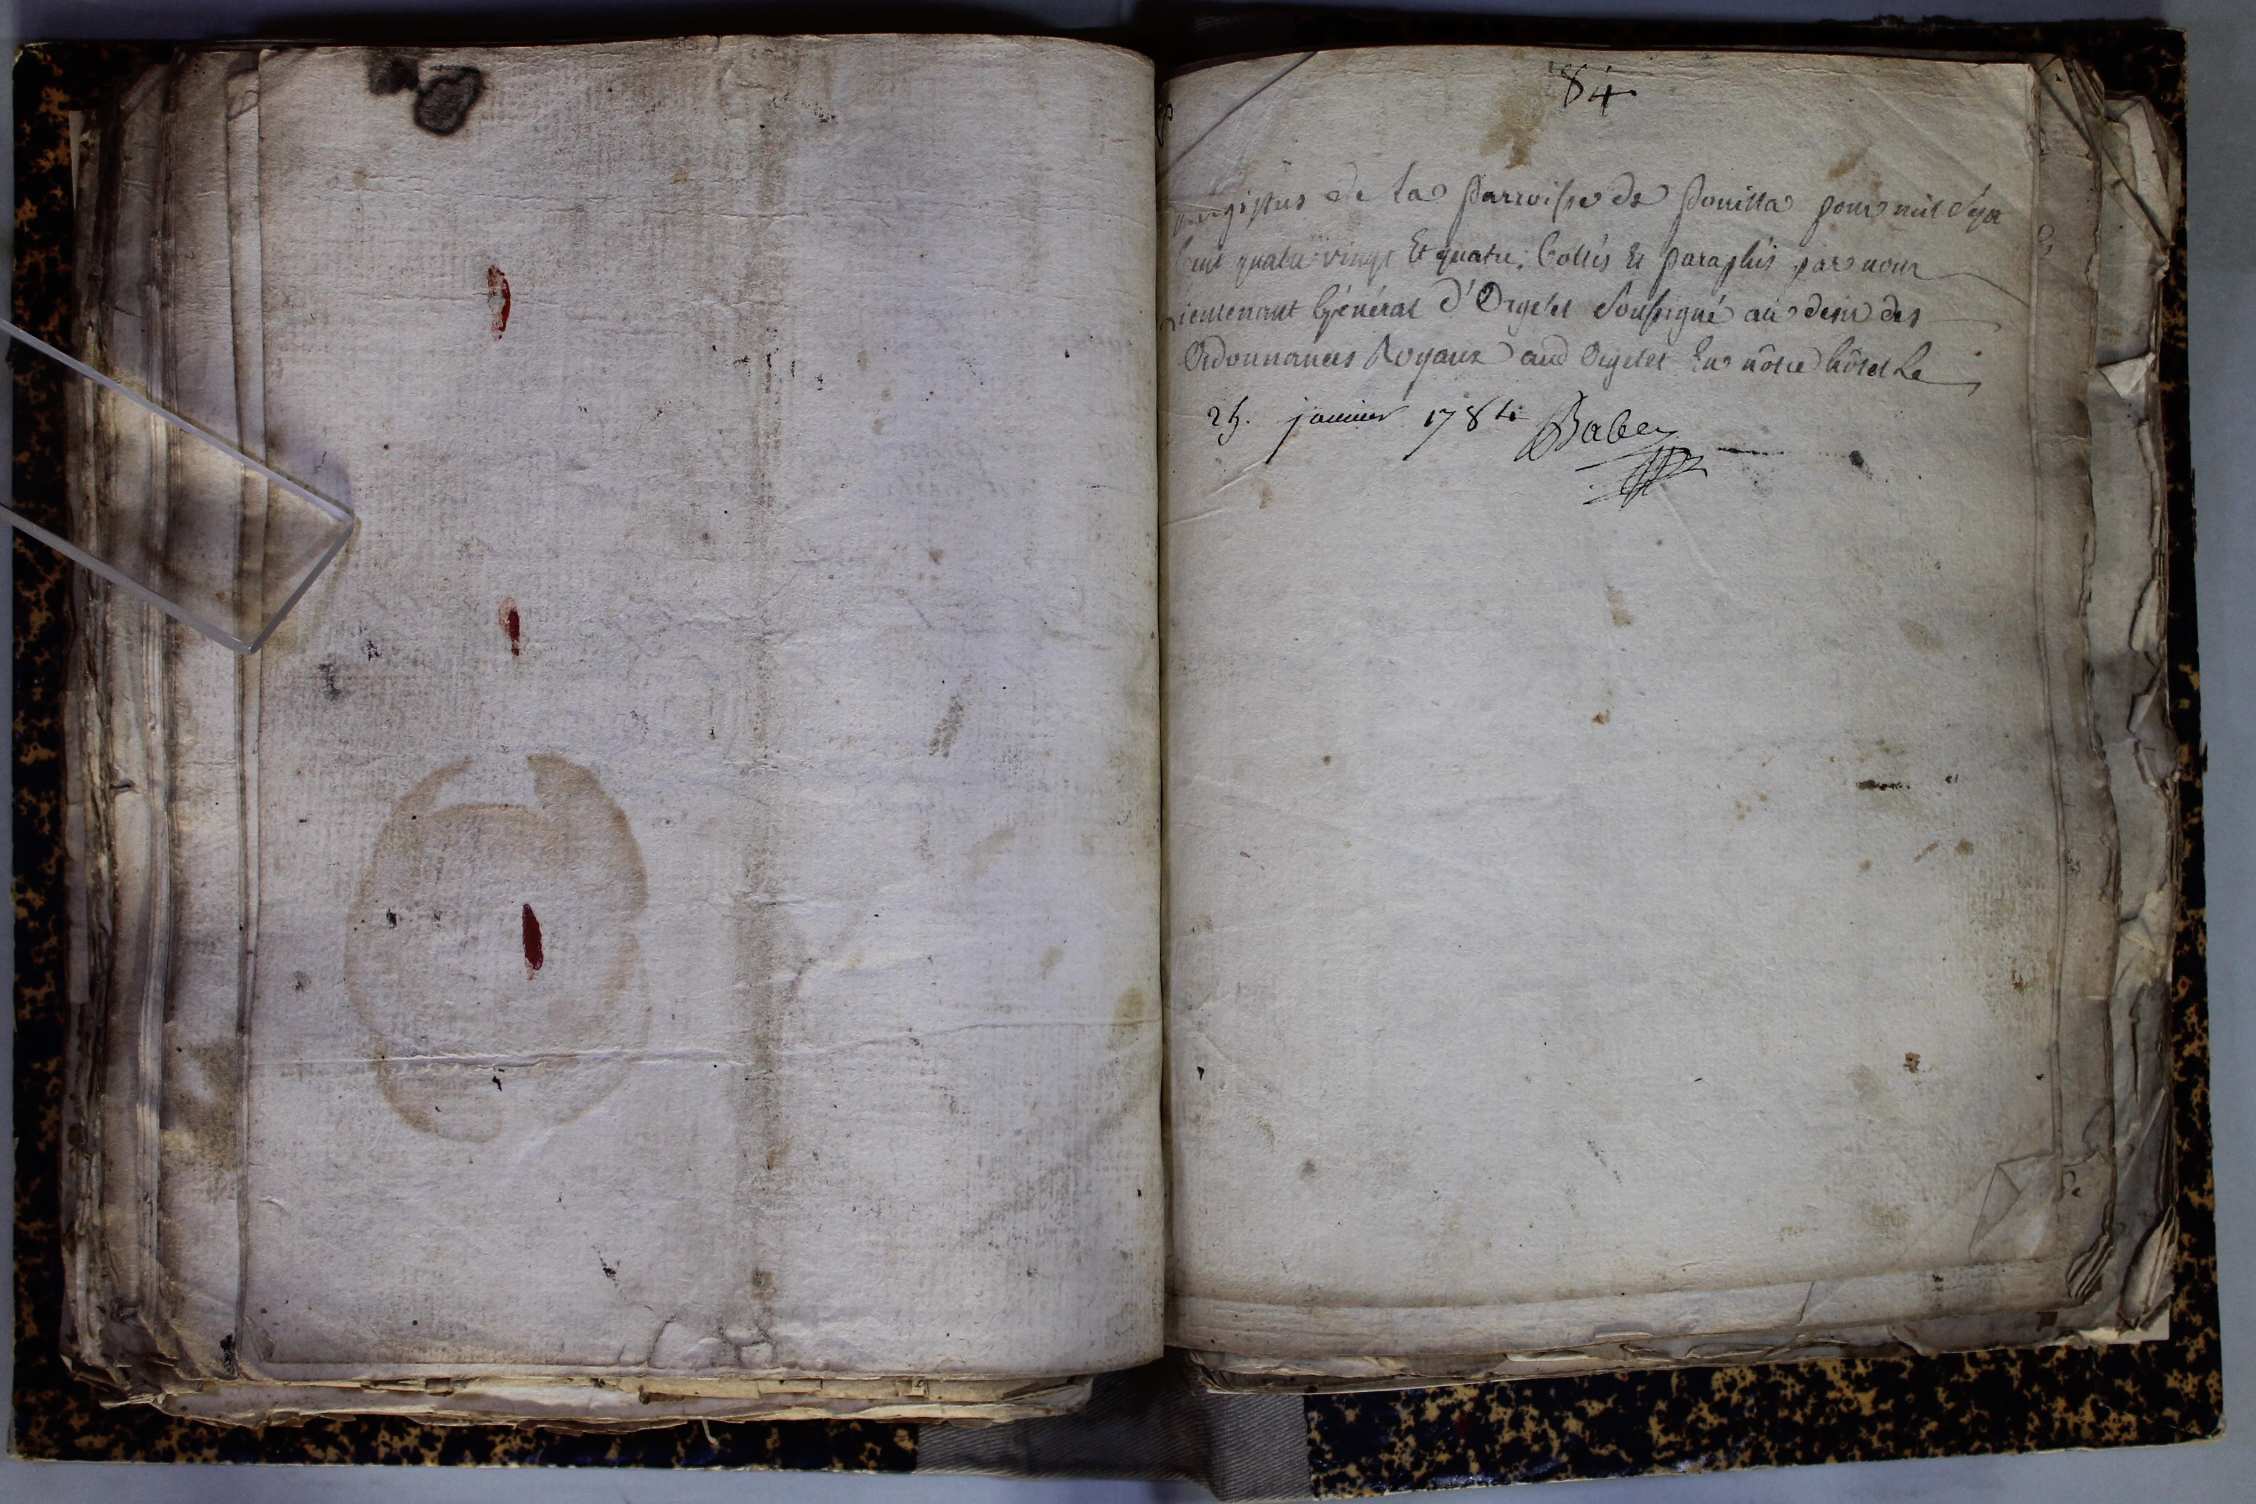 84
Registres de la parroisse de Pouilla pour mil sept
cent quatre vingt Et quatre, Cottés Et paraphés par nous
Lieutenant Général d'Orgelet soussigné au desir des
Ordonnances Royaux aud Orgelet En nôtre hôtel Le
25. janvier 1784 Babey